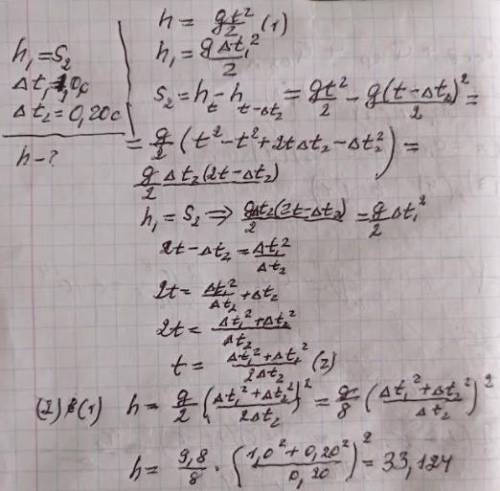 h₁ = S₂
Δt₁ = 1,0c
Δt₂ = 0,20c
h - ?
h = gt²/2 (1)
h₁ = gΔt₁²/2
S₂ = h_t - h_{t-Δt₂} = gt²/2 - g(t-Δt₂)²/2 =
= g/2 (t² - t² + 2tΔt₂ - Δt₂²) =
g/2 Δt₂(2t-Δt₂)
h₁ = S₂ ⇒ gΔt₂(2t-Δt₂)/2 = g/2 Δt₁²
2t - Δt₂ = Δt₁²/Δt₂
2t = Δt₁²/Δt₂ + Δt₂
2t = (Δt₁² + Δt₂²)/Δt₂
t = (Δt₁² + Δt₂²)/2Δt₂ (2)
(2) в (1) h = g/2 ((Δt₁² + Δt₂²)/2Δt₂)² = g/8 ((Δt₁² + Δt₂²)/Δt₂)²
h = 9,8/8 · ((1,0² + 0,20²)/0,20)² = 33,124